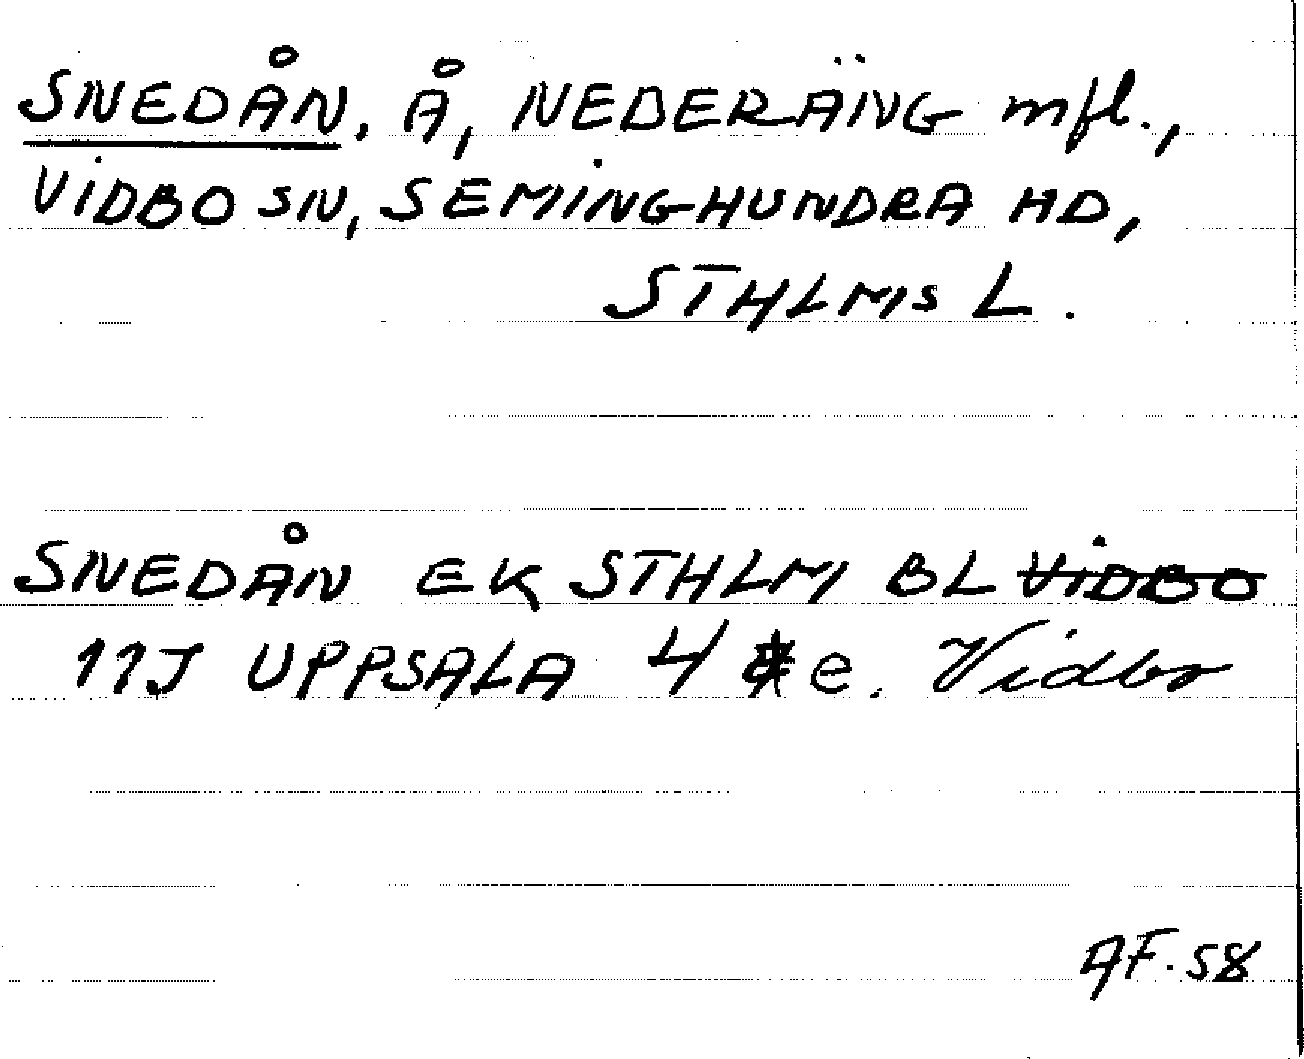 SNEDÅN, Å, NEDERÄNG mfl.,
VIDBO SN, SEMINGHUNDRA HD,
STHLMS L.
SNEDÅN EK STHLM BL VIDBO
11J UPPSALA 4 e. Vidbo
AF.58